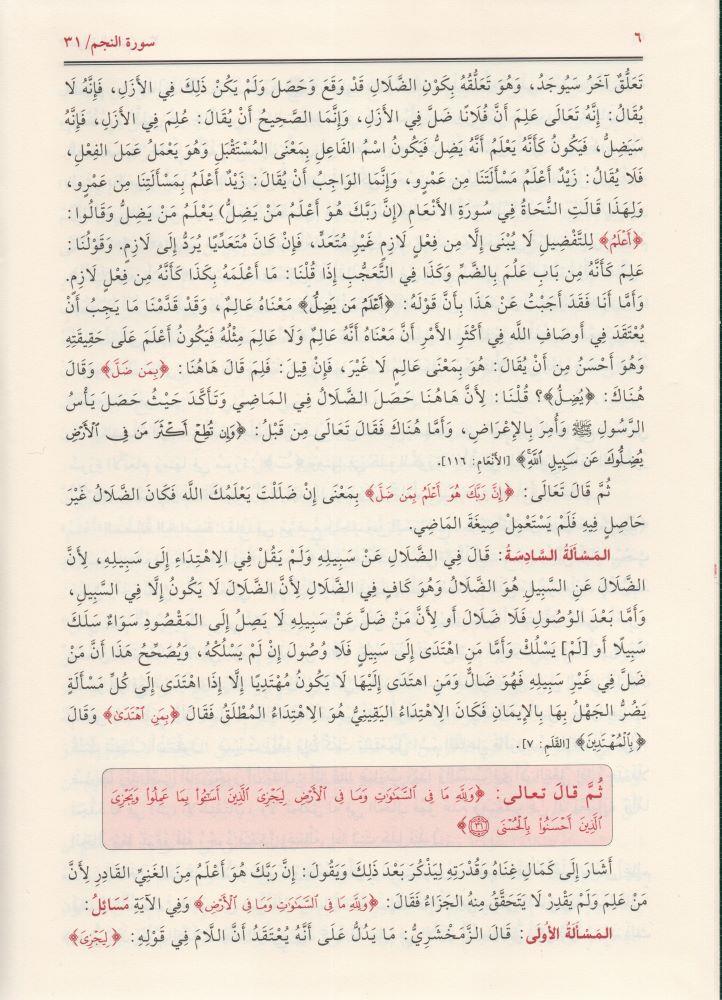 ٦
سورة النجم/ ٣١
تَعَلُّقٌ آخَرُ سَيُوجَدُ، وَهُوَ تَعَلُّقُهُ بِكَوْنِ الضَّلَالِ قَدْ وَقَعَ وَحَصَلَ وَلَمْ يَكُنْ ذَلِكَ فِي الأَزَلِ، فَإِنَّهُ لَا
يُقَالُ: إِنَّهُ تَعَالَى عَلِمَ أَنَّ فُلَانًا ضَلَّ فِي الأَزَلِ، وَإِنَّمَا الصَّحِيحُ أَنْ يُقَالَ: عُلِمَ فِي الأَزَلِ، فَإِنَّهُ
سَيَضِلُّ، فَيَكُونُ كَأَنَّهُ يَعْلَمُ أَنَّهُ يَضِلُّ فَيَكُونُ اسْمُ الفَاعِلِ بِمَعْنَى المُسْتَقْبَلِ وَهُوَ يَعْمَلُ عَمَلَ الفِعْلِ،
فَلَا يُقَالُ: زَيْدٌ أَعْلَمُ مَسْأَلَتَنَا مِن عَمْرٍو، وَإِنَّمَا الوَاجِبُ أَنْ يُقَالَ: زَيْدٌ أَعْلَمُ بِمَسْأَلَتِنَا مِن عَمْرٍو،
وَلِهَذَا قَالَتِ النُّحَاةُ فِي سُورَةِ الأَنْعَامِ (إِنَّ رَبَّكَ هُوَ أَعْلَمُ مَنْ يَضِلُّ) يَعْلَمُ مَنْ يَضِلُّ وَقَالُوا:
﴿أَعْلَمُ﴾ لِلتَّفْضِيلِ لَا يُبْنَى إِلَّا مِن فِعْلٍ لَازِمٍ غَيْرِ مُتَعَدٍّ، فَإِنْ كَانَ مُتَعَدِّيًا يُرَدُّ إِلَى لَازِمٍ. وَقَوْلُنَا:
عَلِمَ كَأَنَّهُ مِن بَابِ عَلُمَ بِالضَّمِّ وَكَذَا فِي التَّعَجُّبِ إِذَا قُلْنَا: مَا أَعْلَمَهُ بِكَذَا كَأَنَّهُ مِن فِعْلٍ لَازِمٍ.
وَأَمَّا أَنَا فَقَدْ أَجَبْتُ عَنْ هَذَا بِأَنَّ قَوْلَهُ: ﴿أَعْلَمُ مَن يَضِلُّ﴾ مَعْنَاهُ عَالِمٌ، وَقَدْ قَدَّمْنَا مَا يَجِبُ أَنْ
يُعْتَقَدَ فِي أَوصَافِ اللَّه فِي أَكْثَرِ الأَمْرِ أَنَّ مَعْنَاهُ أَنَّهُ عَالِمٌ وَلَا عَالِمَ مِثْلُهُ فَيَكُونُ أَعْلَمَ عَلَى حَقِيقَتِهِ
وَهُوَ أَحْسَنُ مِن أَنْ يُقَالَ: هُوَ بِمَعْنَى عَالِمٍ لَا غَيْرَ، فَإِنْ قِيلَ: فَلِمَ قَالَ هَاهُنَا: ﴿بِمَن ضَلَّ﴾ وَقَالَ
هُنَاكَ: ﴿يُضِلُّ﴾؟ قُلْنَا: لِأَنَّ هَاهُنَا حَصَلَ الضَّلَالُ فِي المَاضِي وَتَأَكَّدَ حَيْثُ حَصَلَ يَأْسُ
الرَّسُولِ ﷺ وَأُمِرَ بِالإِعْرَاضِ، وَأَمَّا هُنَاكَ فَقَالَ تَعَالَى مِن قَبْلُ: ﴿وَإِن تُطِعْ أَكْثَرَ مَن فِى ٱلْأَرْضِ
يُضِلُّوكَ عَن سَبِيلِ ٱللَّهِ﴾ [الأَنْعَام: ١١٦].
ثُمَّ قَالَ تَعَالَى: ﴿إِنَّ رَبَّكَ هُوَ أَعْلَمُ بِمَن ضَلَّ﴾ بِمَعْنَى إِنْ ضَلَلْتَ يَعْلَمُكَ اللَّه فَكَانَ الضَّلَالُ غَيْرَ
حَاصِلٍ فِيهِ فَلَمْ يَسْتَعْمِلْ صِيغَةَ المَاضِي.
المَسْأَلَةُ السَّادِسَةُ: قَالَ فِي الضَّلَالِ عَنْ سَبِيلِهِ وَلَمْ يَقُلْ فِي الِاهْتِدَاءِ إِلَى سَبِيلِهِ، لِأَنَّ
الضَّلَالَ عَنِ السَّبِيلِ هُوَ الضَّلَالُ وَهُوَ كَافٍ فِي الضَّلَالِ لِأَنَّ الضَّلَالَ لَا يَكُونُ إِلَّا فِي السَّبِيلِ،
وَأَمَّا بَعْدَ الوُصُولِ فَلَا ضَلَالَ أَو لِأَنَّ مَنْ ضَلَّ عَنْ سَبِيلِهِ لَا يَصِلُ إِلَى المَقْصُودِ سَوَاءٌ سَلَكَ
سَبِيلًا أَو [لَمْ] يَسْلُكْ وَأَمَّا مَنِ اهْتَدَى إِلَى سَبِيلٍ فَلَا وُصُولَ إِنْ لَمْ يَسْلُكْهُ، وَيُصَحِّحُ هَذَا أَنَّ مَنْ
ضَلَّ فِي غَيْرِ سَبِيلِهِ فَهُوَ ضَالٌّ وَمَنِ اهتَدَى إِلَيْهَا لَا يَكُونُ مُهْتَدِيًا إِلَّا إِذَا اهْتَدَى إِلَى كُلِّ مَسْأَلَةٍ
يَضُرُّ الجَهْلُ بِهَا بِالإِيمَانِ فَكَانَ الِاهْتِدَاءُ اليَقِينِيُّ هُوَ الِاهْتِدَاءُ المُطْلَقُ فَقَالَ ﴿بِمَنِ ٱهْتَدَىٰ﴾ وَقَالَ
﴿بِٱلْمُهْتَدِينَ﴾ [القَلَمِ: ٧].
ثُمَّ قالَ تعالى: ﴿وَلِلَّهِ مَا فِى ٱلسَّمَٰوَٰتِ وَمَا فِى ٱلْأَرْضِ لِيَجْزِىَ ٱلَّذِينَ أَسَٰٓـُٔوا۟ بِمَا عَمِلُوا۟ وَيَجْزِىَ
ٱلَّذِينَ أَحْسَنُوا۟ بِٱلْحُسْنَى ٣١﴾
أَشَارَ إِلَى كَمَالِ غِنَاهُ وَقُدْرَتِهِ لِيَذْكُرَ بَعْدَ ذَلِكَ وَيَقُولَ: إِنَّ رَبَّكَ هُوَ أَعْلَمُ مِنَ الغَنِيِّ القَادِرِ لِأَنَّ
مَنْ عَلِمَ وَلَمْ يَقْدِرْ لَا يَتَحَقَّقُ مِنهُ الجَزَاءُ فَقَالَ: ﴿وَلِلَّهِ مَا فِى ٱلسَّمَٰوَٰتِ وَمَا فِى ٱلْأَرْضِ﴾ وَفِي الآيَةِ مَسَائِلُ:
المَسْأَلَةُ الأُولَى: قَالَ الزَّمَخْشَرِيُّ: مَا يَدُلُّ عَلَى أَنَّهُ يُعْتَقَدُ أَنَّ اللَّامَ فِي قَوْلِهِ: ﴿لِيَجْزِىَ﴾